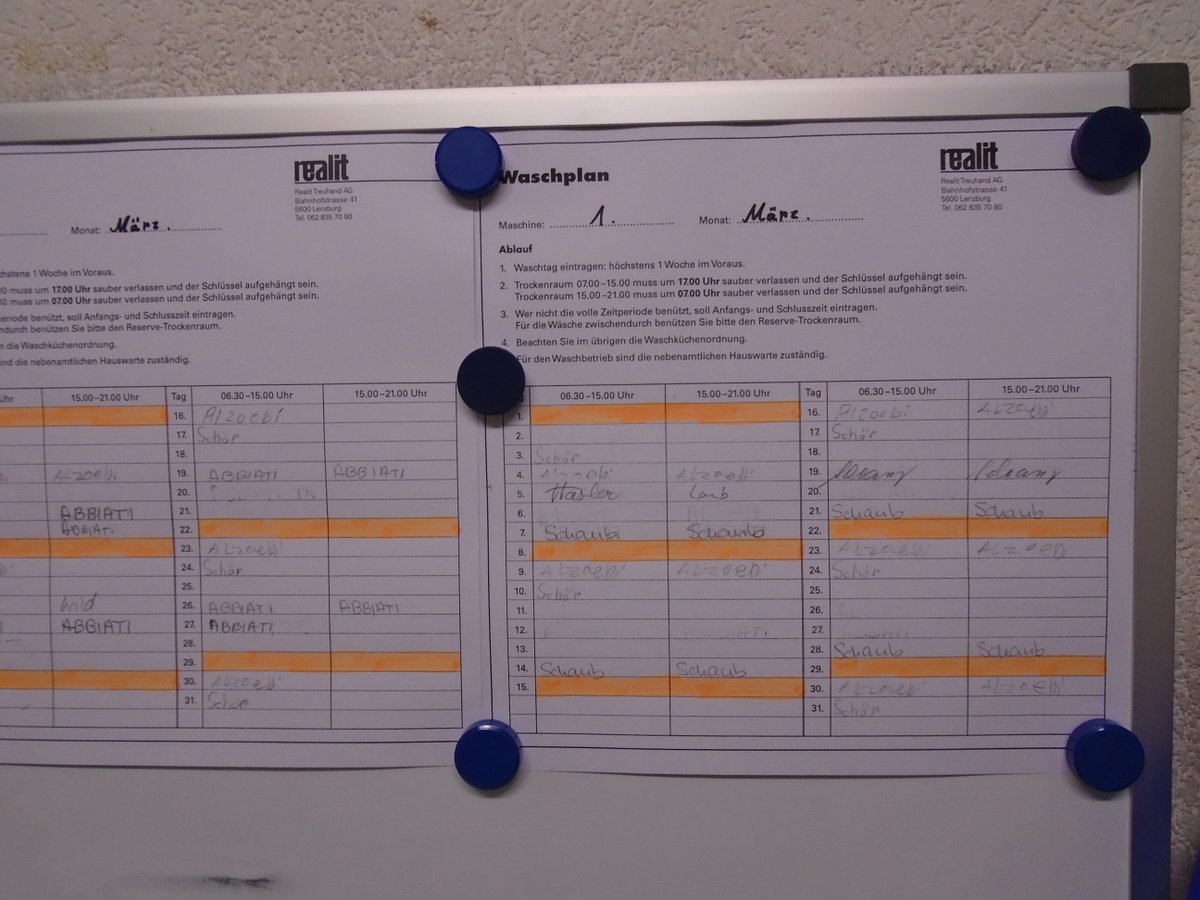 realit
Realit Treuhand AG
Bahnhofstrasse 41
5600 Lenzburg
Tel. 062 835 70 80
Monat: März.
chstens 1 Woche im Voraus.
00 muss um 17.00 Uhr sauber verlassen und der Schlüssel aufgehängt sein.
00 muss um 07.00 Uhr sauber verlassen und der Schlüssel aufgehängt sein.
eriode benützt, soll Anfangs- und Schlusszeit eintragen.
ndurch benützen Sie bitte den Reserve-Trockenraum.
n die Waschküchenordnung.
ind die nebenamtlichen Hauswarte zuständig.
Uhr 15.00–21.00 Uhr Tag 06.30–15.00 Uhr 15.00–21.00 Uhr
16. Alzoebi
17. Schör
18.
Alzoebi 19. ABBIATI ABBIATI
20.
ABBIATI 21.
ABBIATI 22.
23. Alzoebi
24. Schör
25.
Wild 26. ABBIATI ABBIATI
ABBIATI 27. ABBIATI
28.
29.
30. Alzoebi
31. Schör
Waschplan
realit
Realit Treuhand AG
Bahnhofstrasse 41
5600 Lenzburg
Tel. 062 835 70 80
Maschine: 1. Monat: März.
Ablauf
1. Waschtag eintragen: höchstens 1 Woche im Voraus.
2. Trockenraum 07.00–15.00 muss um 17.00 Uhr sauber verlassen und der Schlüssel aufgehängt sein.
Trockenraum 15.00–21.00 muss um 07.00 Uhr sauber verlassen und der Schlüssel aufgehängt sein.
3. Wer nicht die volle Zeitperiode benützt, soll Anfangs- und Schlusszeit eintragen.
Für die Wäsche zwischendurch benützen Sie bitte den Reserve-Trockenraum.
4. Beachten Sie im übrigen die Waschküchenordnung.
Für den Waschbetrieb sind die nebenamtlichen Hauswarte zuständig.
06.30–15.00 Uhr 15.00–21.00 Uhr Tag 06.30–15.00 Uhr 15.00–21.00 Uhr
1. 16. Alzoebi Alzoebi
2. 17. Schör
3. Schör 18.
4. Alzoebi Alzoebi 19.
5. Hasler Laub 20.
6. 21. Schaub Schaub
7. Schaub Schaub 22.
8. 23. Alzoebi Alzoebi
9. Alzoebi Alzoebi 24. Schör
10. Schör 25.
11. 26.
12. 27.
13. 28. Schaub Schaub
14. Schaub Schaub 29.
15. 30. Alzoebi Alzoebi
31. Schör